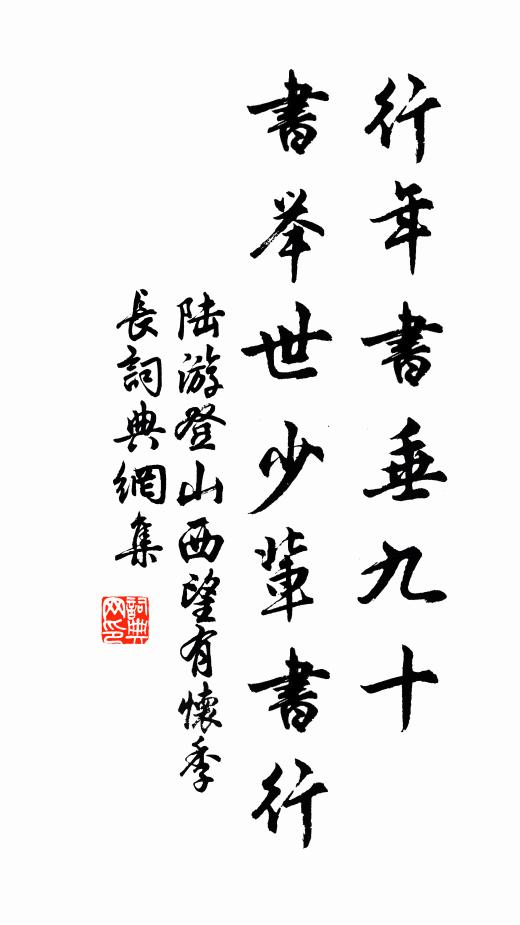 行年書垂九十
書举世少軰書行
陆游登山西望有懷季
長詞典網集
詞典
网印